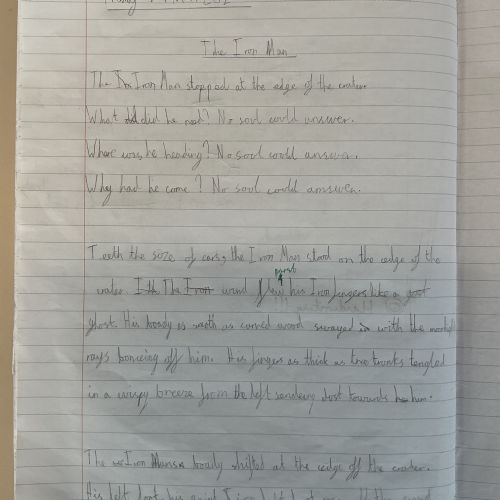 The Iron Man
The Iron Man stopped at the edge of the crater.
What did he need? No soul could answer.
Where was he heading? No soul could answer.
Why had he come? No soul could answer.
Teeth the size of cars, the Iron Man stood on the edge of the
crater. The Iron wind flew past his Iron fingers like a
ghost. His boady is as carved wood swayed with the
rays bonceing off him. His fingers as thick as tree trunks tangled
in a wispy breeze form the left sendeing dust towards him.
The Iron Mans boady shifted at the edge off the crater.
His left foot